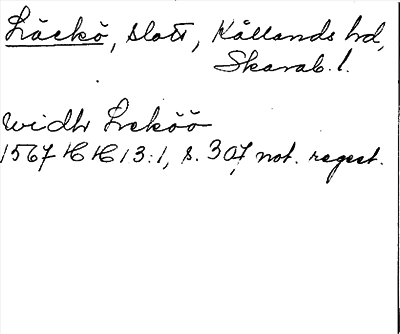 Läckö, slott, Kållands hd,
Skarab. l.
widh Leköö
1567 HH 13:1, s. 307, not. regest.